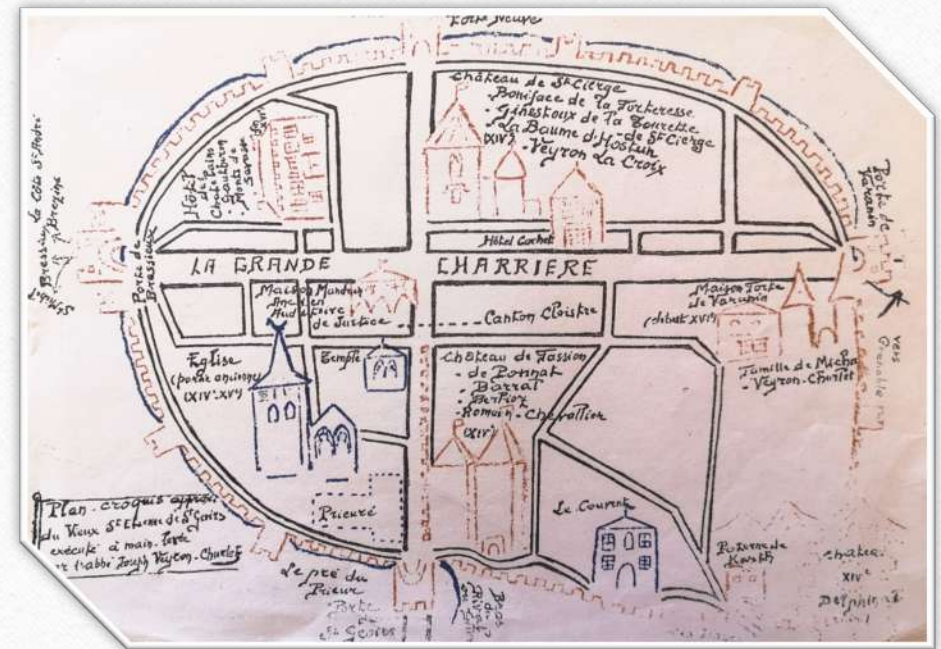 Porte Neuve
Château de St Cierge
- Boniface de la Forteresse
- Ginestoux de la Tourette
- La Baume d'Hostun - de St Cierge
(XIV°)
- Veyron La Croix
Hôtel
de
Chatelains
Gautheron
Monts de
Savasse
XVI°
La Côte St André
Bressieux
Brezins
Porte de
Bressieux
Porte de
Varanin
vers
Grenoble
Hôtel Cochet
LA GRANDE CHARRIERE
Maison Mandrin
Ancien
Auditoire
de Justice
Canton Cloistre
Maison Forte
de Varanin
(début XVI°)
Famille de Micha
Veyron-Churlet
Eglise
(partie ancienne)
(XIV°-XV°)
Temple
Château de Tassion
- de Ponnat
- Barral
- Berlioz
- Romain-Chevallier
(XIV°)
Prieuré
Le Couvent
Poterne de
Chatea
XIV°
Delphinal
Plan-croquis approxi
du Vieux St Etienne de St Geoirs
exécuté à main-levée
l'abbé Joseph Veyron-Churlet
Le pré du
Prieur
Porte
de
St Geoirs